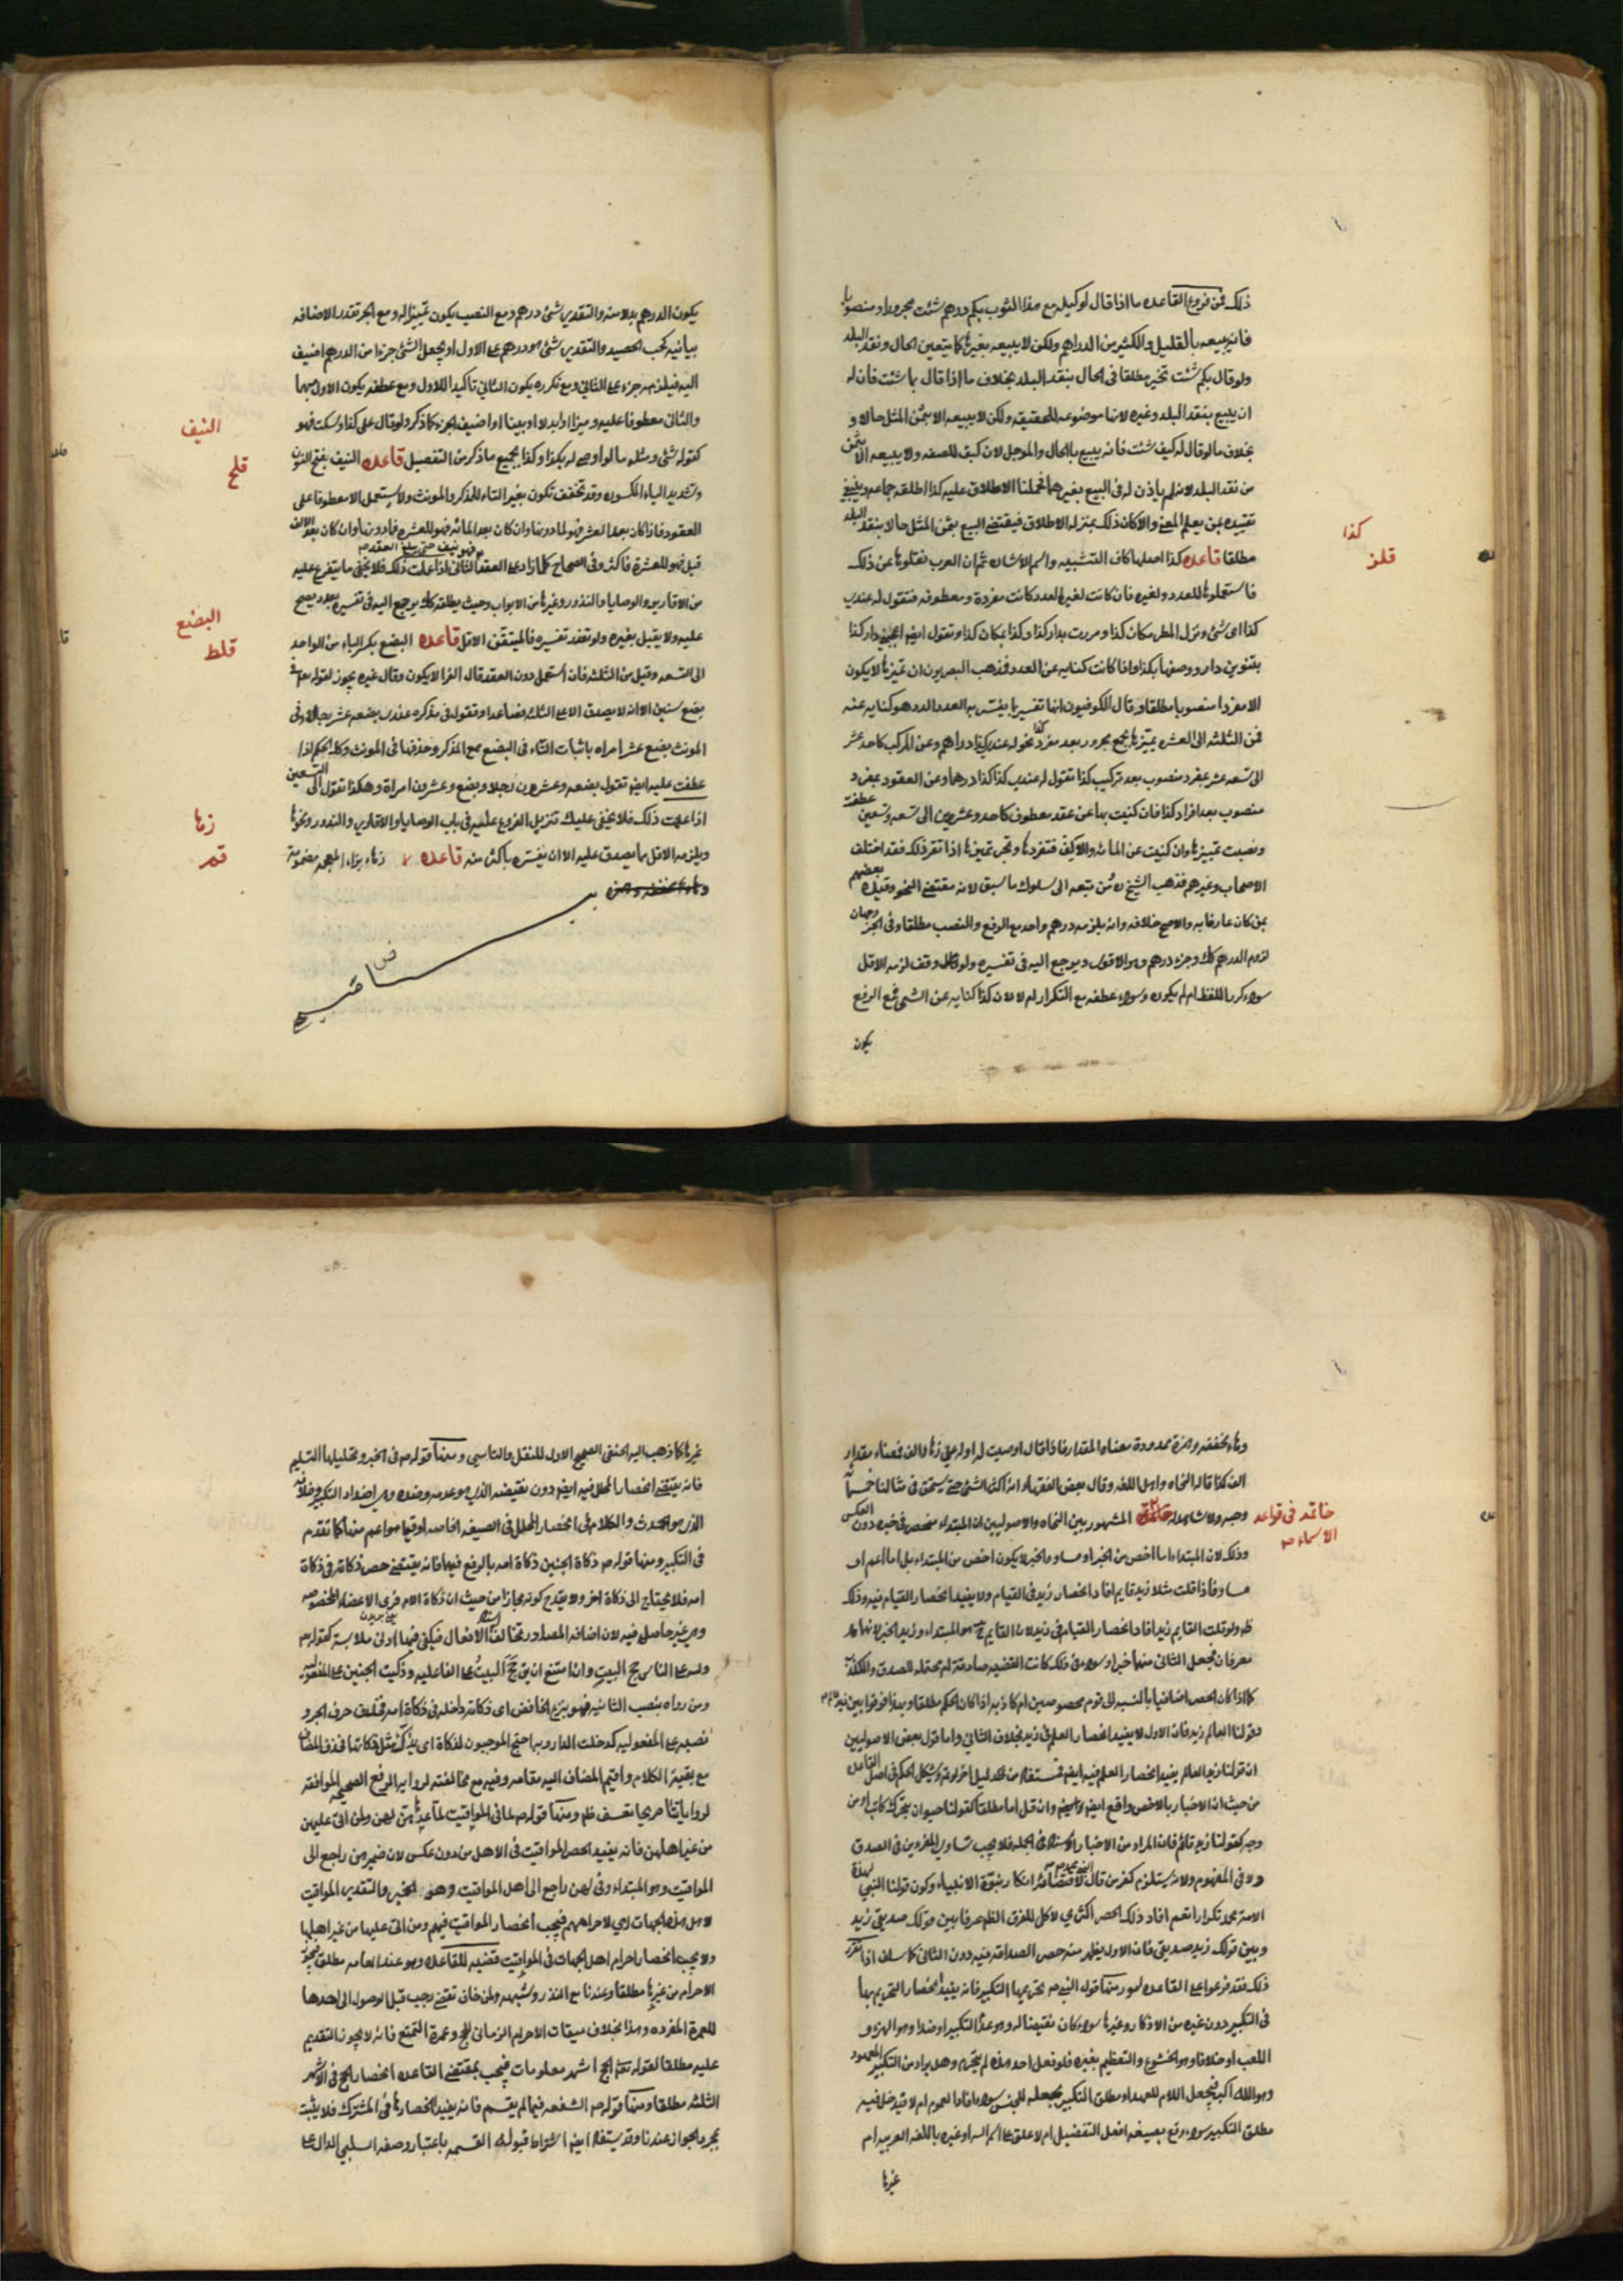 ذلك فمن فروع القاعده ما اذا قال لوكيله بع هذا الثوب بكم درهم شئت مجرورا و منصوبا
فانه يبيعه بالقليل والكثير من الدراهم ولكن لا يبيعه بغيرها كما يتعين الحال ونقد البلد
ولو قال بكم شئت تخير مطلقا فى الحال بنقد البلد بخلاف ما اذا قال بما شئت فان له
ان يبيع بنقد البلد وغيره لانها موضوعه للحقيقه ولكن لا يبيعه الا بثمن المثل حالا و
بخلاف ما لو قال له كيف شئت فانه يبيع بالحال والموجل لان كيف للصفه ولا يبيعه الا بثمن
من نقد البلد لانه لم ياذن له فى البيع بغيرهما فحملنا الاطلاق عليه كذا اطلقه جماعه وينبغى
تقييده بمن يعلم المعنى والا كان ذلك بمنزله الاطلاق فيقتضى البيع بثمن المثل حالا بنقد البلد
مطلقا قاعده كذا اصلها كاف التشبيه واسم الاشاره ثم ان العرب نقلوها عن ذلك
فاستعملوها للعدد ولغيره فان كانت لغير العدد كانت مفردة ومعطوفه فتقول له عندى
كذا اى شئ ونزل المطر مكان كذا ومررت بدار كذا وكذا بمكان كذا وتقول ايضا اعجبنى دار كذا
بتنوين دار ووصفها بكذا واذا كانت كنايه عن العدد فذهب البصريون ان تميزها لا يكون
الا مفردا منصوبا مطلقا وقال الكوفيون انها تفسير بما يفسر به العدد الذى هو كنايه عنه
فمن الثلثه الى العشره تميزها بجمع مجرور بعد مفرد كذا نحو له عندى كذا دراهم وعن المركب كاحد عشر
الى تسعه عشر بمفرد منصوب بعد تركيب كذا تقول له عندى كذا كذا درهما وعن العقود بمفرد
منصوب بعد افراد كذا فان كنيت بها عن عقد معطوف كاحد وعشرين الى تسعه وتسعين عطفت
ونصبت تمييزها وان كنيت عن المائه والالف فتفردها وتجر تميزها اذا تقرر ذلك فقد اختلف
الاصحاب وغيرهم فذهب الشيخ ره ومن تبعه الى سلوك ما سبق لانه مقتضى النحو وقيده بعضهم
بمن كان عارفا به والاصح خلافه وانه يلزمه درهم واحد مع الرفع والنصب مطلقا وفى الجر وجهان
لزوم الدرهم كك وجزء درهم وهو الاقوى ويرجع اليه فى تفسيره ولو قال وقف لزمه الاقل
سواء كرر اللفظ ام لم يكرره وسواء عطفه مع التكرار ام لا لان كذا كنايه عن الشئ فمع الرفع
يكون
كذا
قلز
يكون الدرهم بدلا منه والتقدير شئ درهم ومع النصب يكون تمييزا له ومع الجر تقدر الاضافه
بيانيه كحب الحصيد والتقدير شئ هو درهم على الاول او يجعل الشئ جزءا من الدرهم اضيف
اليه فيلزمه جزء على الثانى ومع تكرره يكون الثانى تاكيدا للاول ومع عطفه يكون الاول مبهما
والثانى معطوفا عليه وميزا او ابدلا او بينا او اضيف الجزء كما ذكر ولو قال على كذا وسكت فهو
كقوله شئ ومثله ما لو اوصى له بكذا وكذا بجميع ما ذكر من التفصيل قاعده النيف بفتح النون
وتشديد الياء المكسوره وقد تخفف تكون بغير التاء للمذكر والمونث ولا يستعمل الا معطوفا على
العقود فاذا كان بعد العشر فهو لما دونها وان كان بعد المائه فهو للعشره فما دونها وان كان بعد الالف
قيل فهو للعشرة فاكثر وفى الصحاح كلما زاد على العقد فهو نيف حتى يبلغ العقد الثانى اذا علمت ذلك فلا يخفى ما يتفرع عليه
من الاقارير والوصايا والنذور وغيرها من الابواب وحيث يطلقه كك يرجع اليه فى تفسيره بعدد يصح
عليه ولا يقبل بغيره ولو تعذر تفسيره فالمتيقن الاقل قاعده البضع بكسر الباء من الواحد
الى التسعه وقيل من الثلثه فان استعمل دون العقد قال الفرا لا يكون وقال غيره يجوز لقوله تعالى فى
بضع سنين الا انه لا يصدق الا على الثلث فصاعدا وتقول فى مذكره عندى بضعه عشر رجلا وفى
المونث بضع عشر امراه باثبات التاء فى البضع مع المذكر وحذفها فى المونث وكذا الحكم اذا
عطفت عليه ايضا تقول بضعه وعشرون رجلا وبضع وعشرون امراة وهكذا تقول الى التسعين
اذا علمت ذلك فلا يخفى عليك تنزيل الفروع عليه فى باب الوصايا والاقارير والنذور ونحوها
ويلزمه الاقل مما يصدق عليه الا ان يفسره باكثر منه قاعده زهاء بزاء المعجمه مضمومة
وهاء مخففه وهمزه
النيف
قلح
البضع
قلط
زها
قم
وهاء مخففه وهمزة ممدودة معناه المقدار فاذا قال اوصيت له او له على زهاء الف فمعناه مقدار
الف كذا قاله النحاه واهل اللغه وقال بعض الفقهاء انه اكثر الشئ حتى يستحق فى مثالنا خمسمائة
وحبه ولا شاهد له خاتمة المشهور بين النحاه والاصوليين ان المبتداء منحصر فى خبره دون العكس
وذلك لان المبتداء اما اخص من الخبر او مساو والخبر لا يكون اخص من المبتداء بل اما اعم او
مساو فاذا قلت مثلا زيد قايم افاد انحصار زيد فى القيام ولا يفيد انحصار القيام فيه وذلك
ظ ولو قلت القايم زيد افاد انحصار القيام فى زيد لان القايم هو المبتداء وزيد الخبر لانهما
معرفان فجعل الثانى منهما خبرا وسواء فى ذلك كانت القضيه صادقة ام محتمله للصدق والكذب
كما اذا كان الحصر اضافيا بالنسبه الى قوم مخصوصين ام كاذبه اذا كان الحكم مطلقا وبهذا فرقوا بين زيد العالم
وقولنا العالم زيد فان الاول لا يفيد انحصار العلم فى زيد بخلاف الثانى واما قول بعض الاصوليين
ان قولنا زيد العالم يفيد انحصار العلم فيه ايضا فمستفاد من دليل اخر لو تم ويشكل الحكم فى اصل القاعده
من حيث ان الاخبار بالاخص واقع ايضا وان قل اما مطلقا كقولنا حيوان يتحرك كاتب او من
وجه كقولنا زيد قائم فان المراد من الاخبار الاسناد فى الجمله فلا يجب تساوى المفردين فى الصدق
ولا فى المفهوم ولانه يستلزم كفر من قال النبى محمد ص لاقتضائه انكار نبوة الانبياء وكون قولنا النبى لهذه
الامة محمد تكرارا نعم افاد ذلك الحصر اكثرى لا كلى للفرق الظاهر فى ما بين قولك صديقى زيد
وبين قولك زيد صديقى فان الاول يظهر منه حصر الصداقه فيه دون الثانى كما سلف اذا تقرر
ذلك فقد فرعوا على القاعده امور منها قوله النبى ص تحريمها التكبير فانه يفيد انحصار التحريم بها
فى التكبير دون غيره من الاذكار وغيرها سواء كان نقيضا له وهو عدم التكبير او ضدا وهو الهزء و
اللعب او خلافا وهو الخشوع والتعظيم بغيره فلو فعل احد هذه لم يتحرم وهل يراد من التكبير المعهود
وهو الله اكبر فيجعل اللام للعهد او مطلق التكبير بجعله للجنس سواء افاد العموم ام لا فيدخل فيه
مطلق التكبير سواء وقع بصيغه افعل التفضيل ام لا علق على اسم الله او غيره باللغه العربيه ام
غيرها
خاتمه فى قواعد
الاسماء ص
غيرها كما ذهب اليه الحنفى الصحيح الاول للنقل والتاسى ومنها قوله ص فى الخبر وتحليلها التسليم
فانه يقتضى انحصار المحلل فيه ايضا دون نقيضه الذى هو عدمه وضده وهى اضداد التكبير وخلافه
الذى هو الحدث والكلام فى انحصار المحلل فى الصيغه الخاصه او فيما هو اعم منها كما تقدم
فى التكبير ومنها قوله ص ذكاة الجنين ذكاة امه بالرفع فيهما فانه يقتضى حصر ذكاته فى ذكاة
امه فلا يحتاج الى ذكاة اخر ولا يقدح كونه مجازا من حيث ان ذكاة الام فرى الاعضاء المخصوصه
وهى غير حاصله فيه لان اضافه المصادر تخالف اسناد الافعال فيكفى فيها ادنى ملابسة كقوله تعالى
ولله على الناس حج البيت وان امتنع ان يق حج البيت على الفاعليه وذكيت الجنين على المفعوليه
ومن رواه بنصب الثانيه فهو بنزع الخافض اى ذكاته داخله فى ذكاة امه فحذف حرف الجر و
نصبه على المفعوليه كدخلت الدار وبه احتج الموجبون للذكاة اى يذكى مثل ذكاتها فحذف المضاف
مع بقية الكلام واقيم المضاف اليه مقامه وفيه مع مخالفته لروايه الرفع الصحيحه الموافقه
لرواياتنا صريحا تعسف ظ ومنها قوله ص لما فى المواقيت لما عدهن هن لهن ولمن اتى عليهن
من غير اهلهن فانه يفيد انحصار المواقيت فى الاهل من دون عكس لان ضمير هن راجع الى
المواقيت وهو المبتداء وفى لهن راجع الى اهل المواقيت وهو الخبر والتقدير المواقيت
لاهل هذه الجهات اى لاحرامهم فيجب انحصار المواقيت فيهم ومن اتى عليها من غير اهلها
ولا يجب انحصار احرام اهل الجهات فى المواقيت قضيه للقاعده وهو عند العامه مطلق فيجوز
الاحرام من غيرها مطلقا وعندنا مع النذر وشبهه ولمن خاف تقضى رجب قبل الوصول الى احدها
للعمرة المفرده وهذا بخلاف ميقات الاحرام الزمانى للحج وعمرة التمتع فانه لا يجوز التقديم
عليه مطلقا لقوله تعالى الحج اشهر معلومات فيجب بمقتضى القاعده انحصار الحج فى الاشهر
الثلثه مطلقا ومنها قوله ص الشفعه فيما لم يقسم فانه يفيد انحصارها فى المشترك فلا يثبت
بمجرد الجوار عندنا وقد يستفاد ايضا اشتراط قبوله القسمه باعتبار وصفه السلبى الدال على